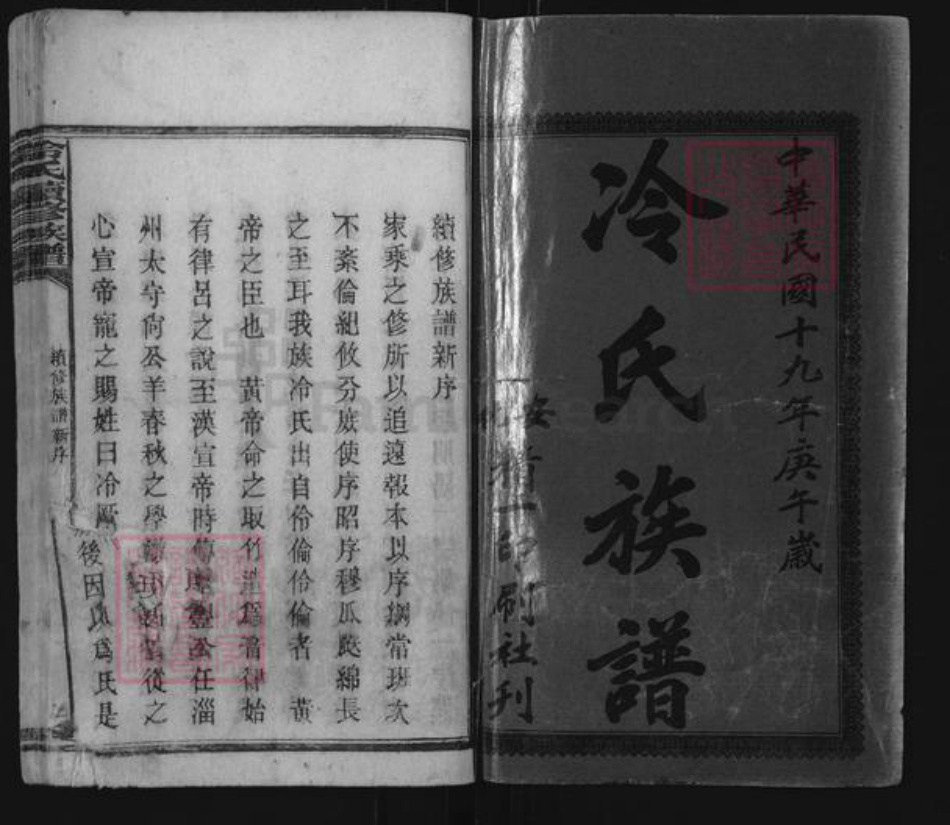 中華民國十九年庚午歲
冷氏族譜
精一印刷社刊
續修族譜新序
家乘之修所以追遠報本以序綱常班次
不紊倫紀攸分庶使序昭序穆瓜瓞綿長
之至耳我族冷氏出自伶倫伶倫者 黃
帝之臣也 黃帝命之取竹造為音律始
有律呂之說至漢宣帝時 公任淄
州太守尚公羊春秋之學 從之
心宣帝寵之賜姓曰冷厥後因以為氏是
冷氏續修族譜
續修族譜新序